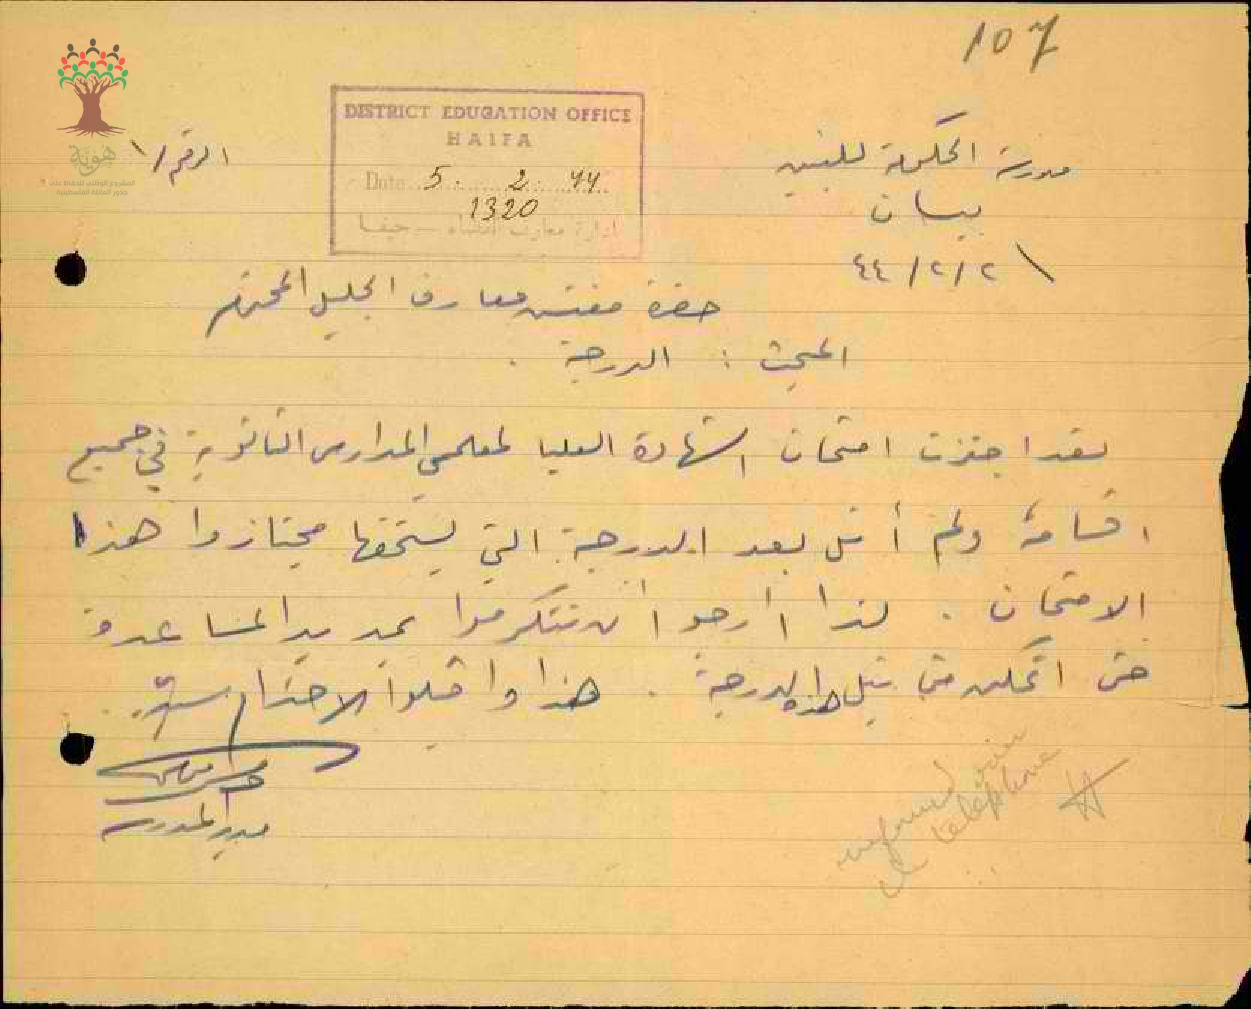 107
DISTRICT EDUCATION OFFICE
HAIFA
Date 5. 2. 44
1320
ادارة معارف اللواء — حيفا
مدرسة الحكومة للبنين
بيسان
٢/٢/٤٤
الرقم /١
هوية
المشروع الوطني للحفاظ على
جذور العائلة الفلسطينية
حضرة مفتش معارف الجليل المحترم
المبحث : الدرجة .
لقد اجتزت امتحان الشهادة العليا لمعلمي المدارس الثانوية في جميع
اقسامه ولم أنل بعد الدرجة التي يستحقها مجتازوا هذا
الامتحان . لذا أرجو أن تتكرموا بمد يد المساعدة
حتى اتمكن من نيل هذه الدرجة . هذا واقبلوا الاحترام سيدي
مدير المدرسة
informed him
telephone